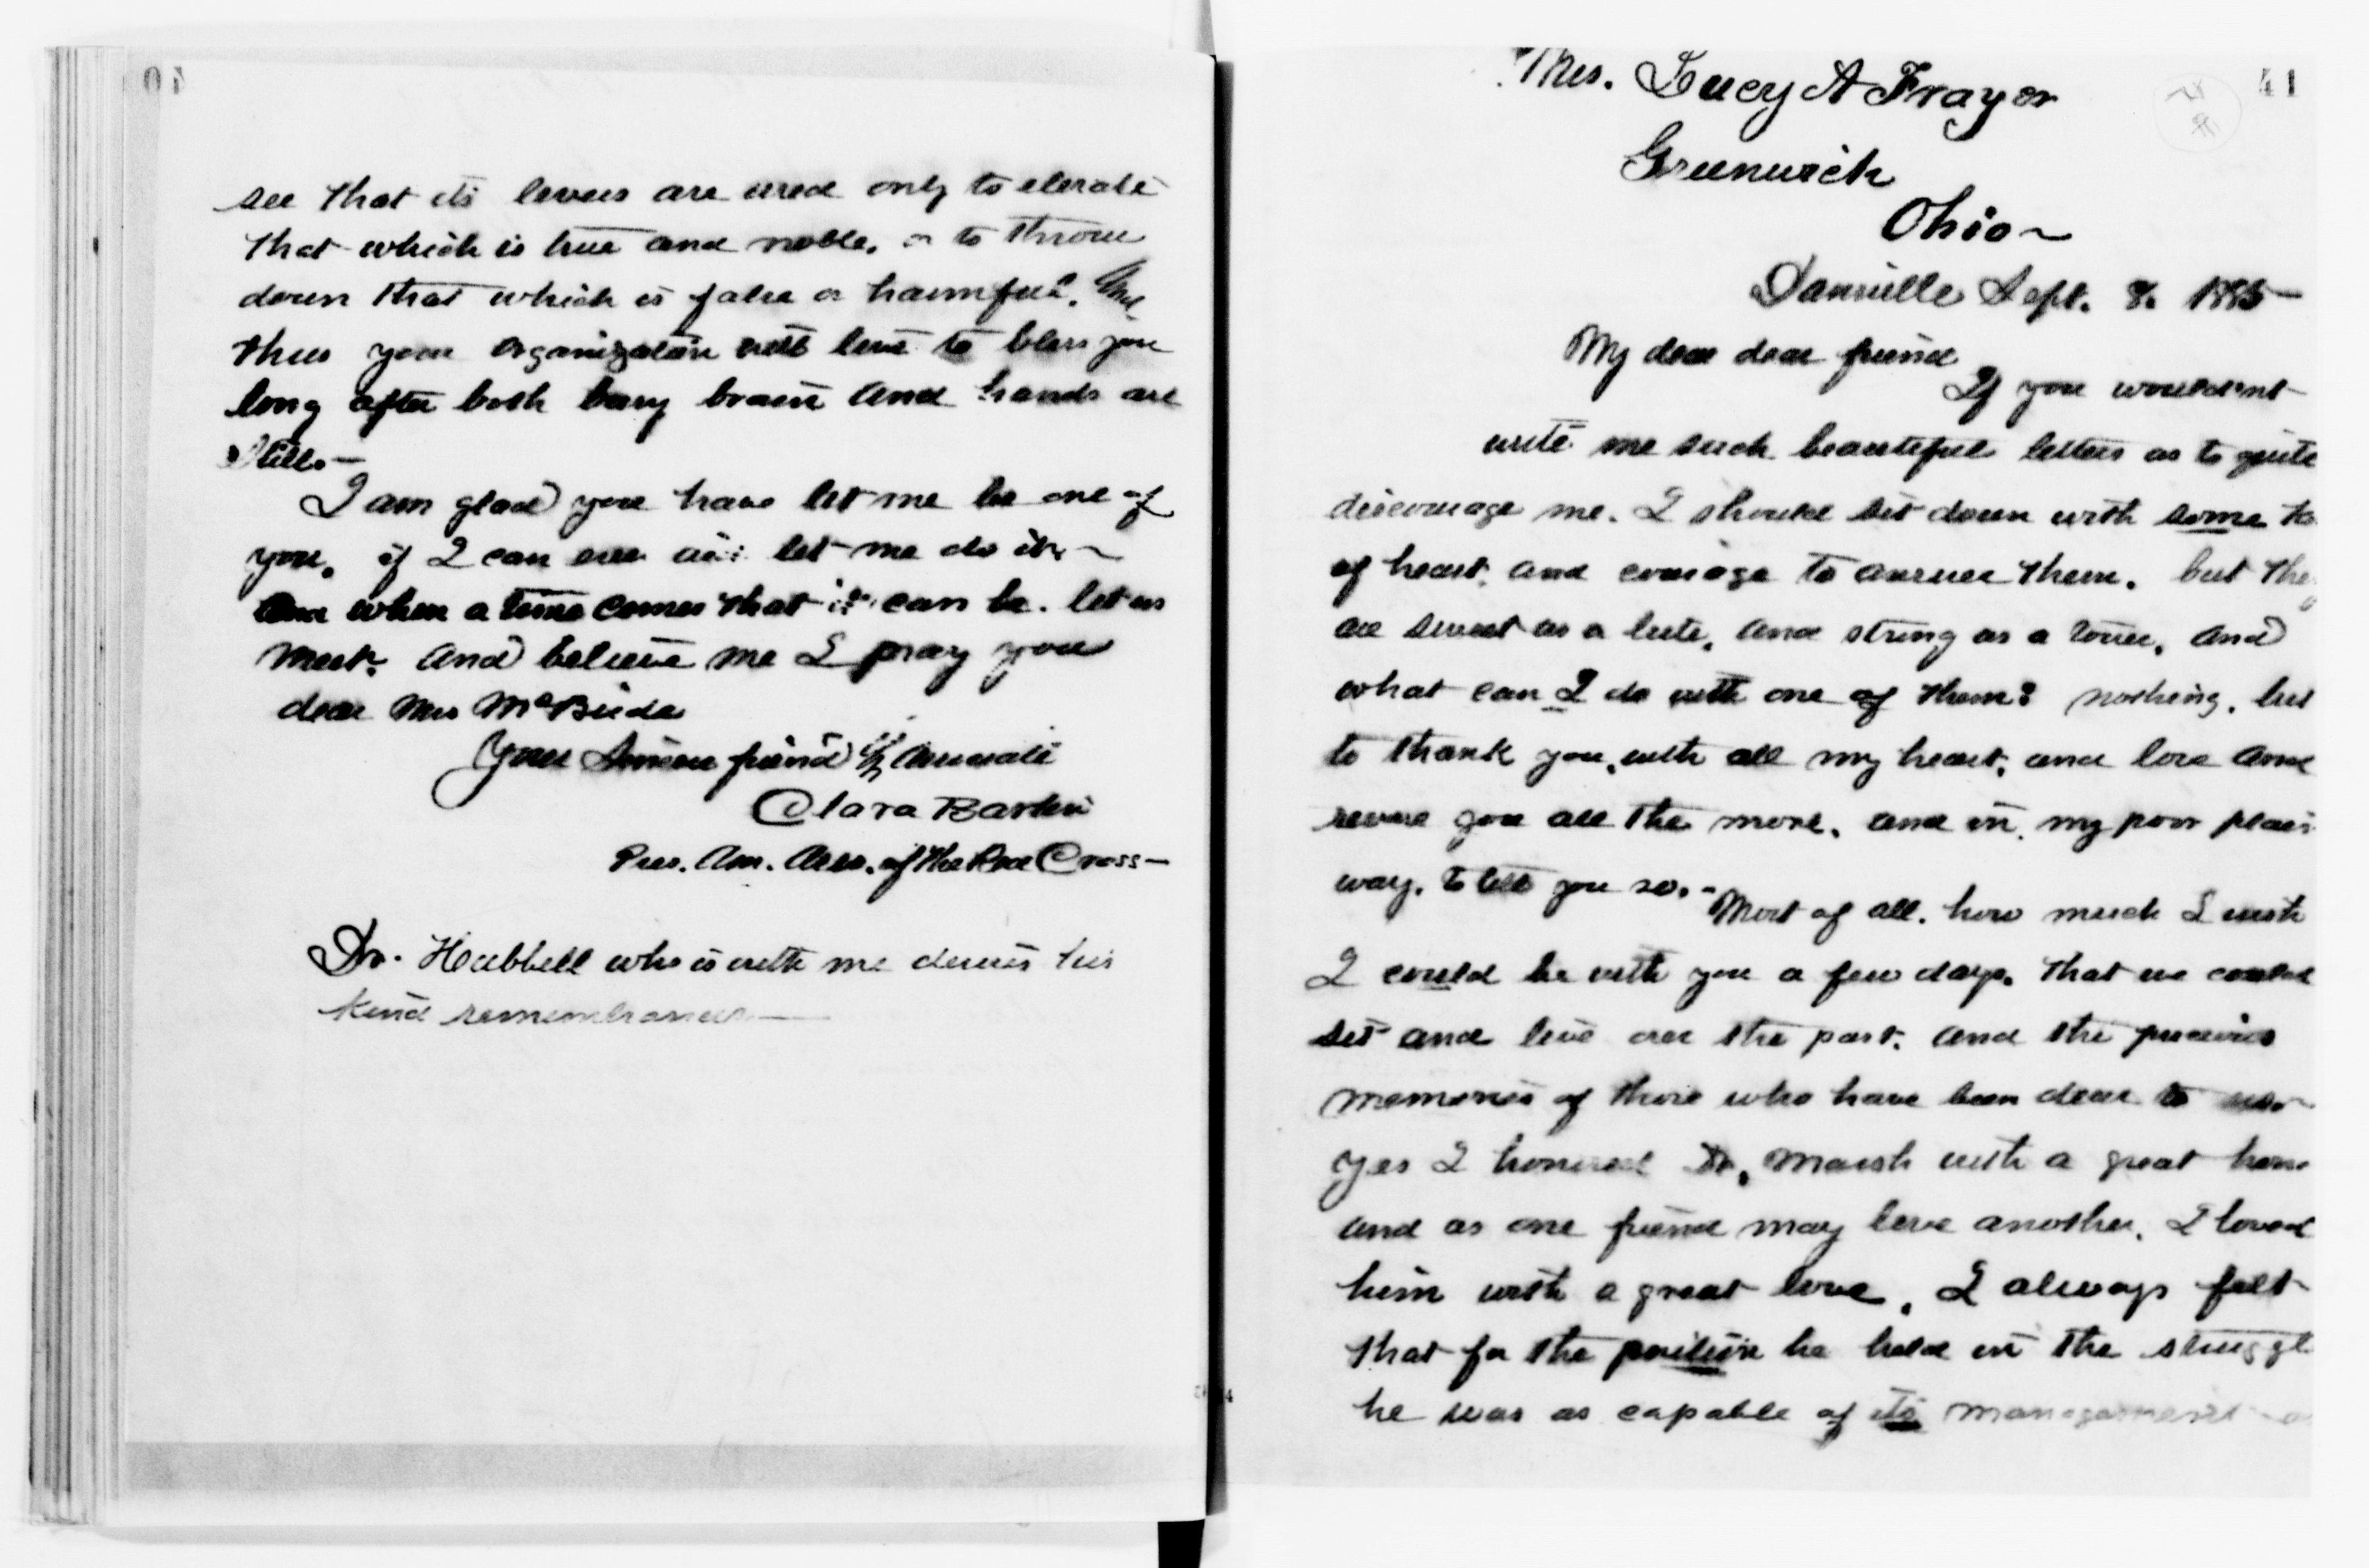 see that its levers are used only to elevate
that which is true and noble, or to throw
down that which is false or harmful. And
thus your organization will live to bless you
long after both busy brain and hands are
still. —
I am glad you have let me be one of
you. if I can ever aid let me do it. —
And when a time comes that it can be. let us
meet. and believe me I pray you
dear Mrs McBride
Your Sincere friend &
Clara Barton
Pres. Am. Asso. of the Red Cross —
Dr. Hubbell who is with me desires his
kind remembrances —
40
41
Mrs. Lucy A Frayer
Greenwich
Ohio ~
Dansville Sept. 8. 1885 —
My dear dear friend
If you wouldnt
write me such beautiful letters as to quite
discourage me. I should sit down with some
of heart, and courage to answer them. but they
are sweet as a lute, and strong as a tower, and
what can I do with one of them? nothing, but
to thank you, with all my heart, and love and
revere you all the more, and in my poor plain
way, to tell you so. -
Most of all. how much I wish
I could be with you a few days. that we could
sit and live over the past, and the precious
memories of those who have been dear to us. ~
Yes I honored Dr. Marsh with a great
and as one friend may love another, I loved
him with a great love, I always felt
that for the position he held in the struggle
he was as capable of its management